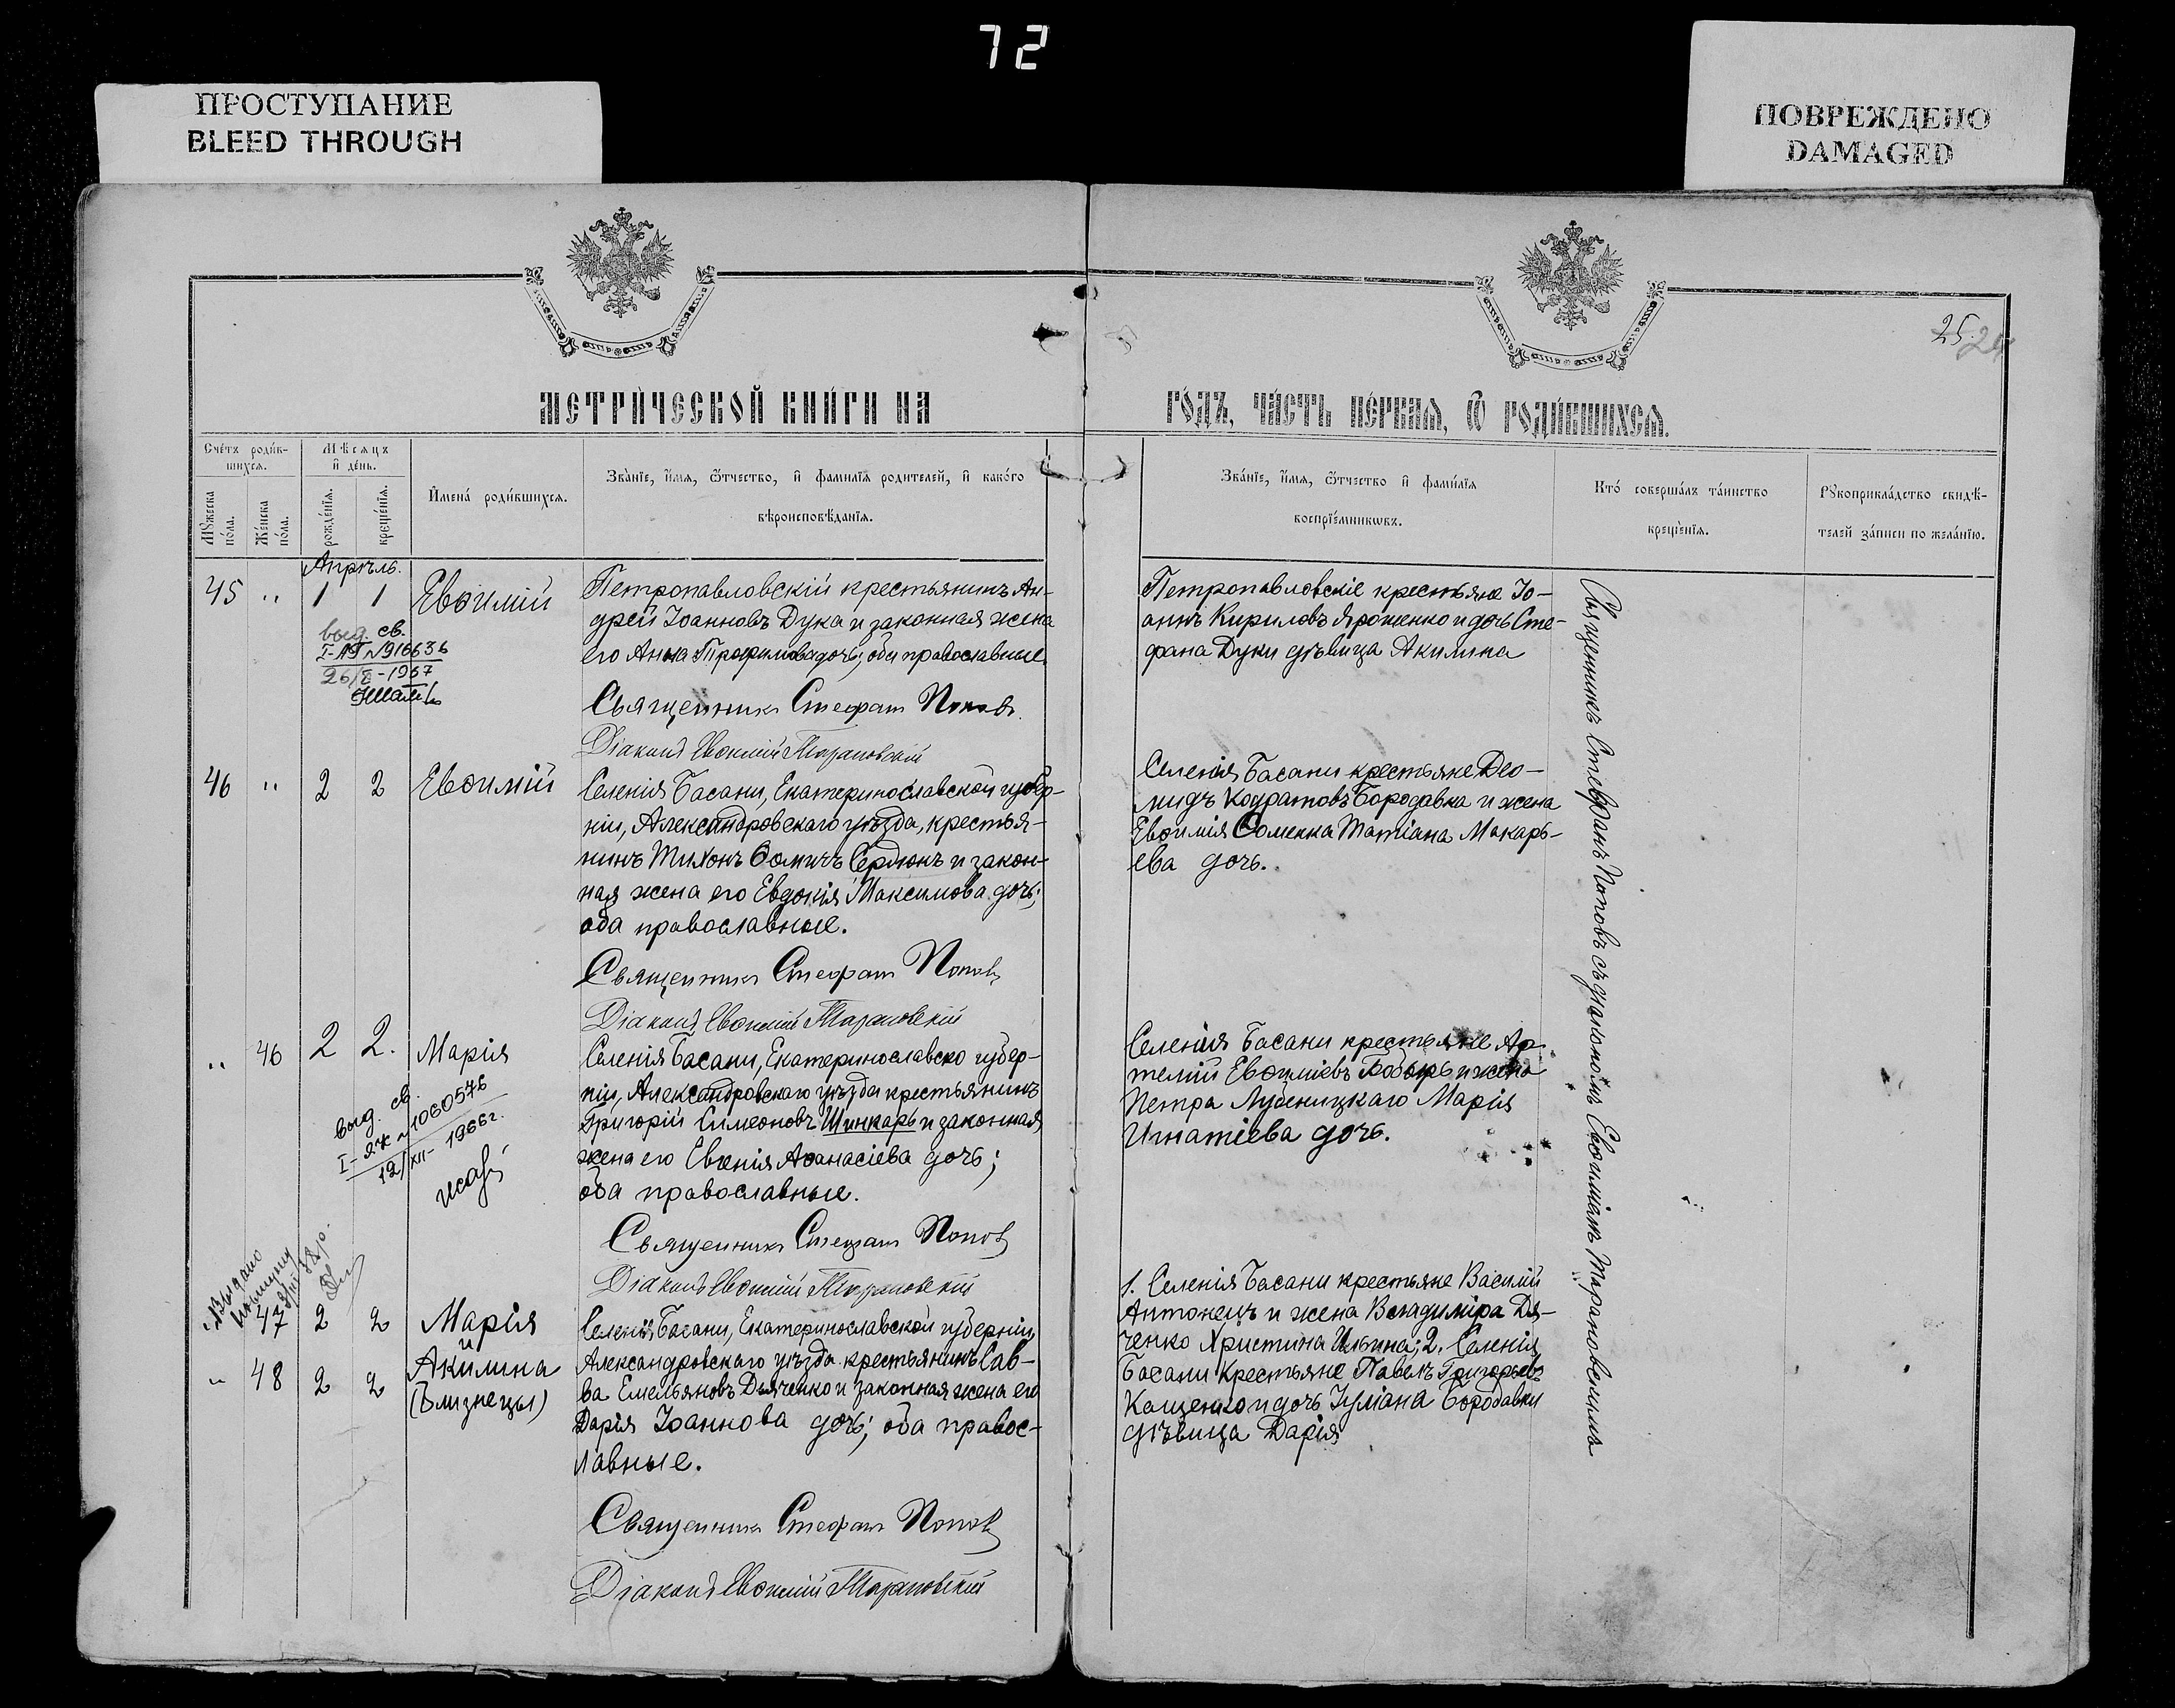 72
ПРОСТУПАНИЕ
BLEED THROUGH
ПОВРЕЖДЕНО
DAMAGED
25.
24
МЕТРИ́ЧЕСКОЙ КНИ́ГИ НА
ГО́ДЪ, ЧА́СТЬ ПЕ́РВАЯ, Ѽ РОДИ́ВШИХСЯ.
Счéтъ роди́в-
шихся.
Мѣ́сяцъ
и̂ дéнь.
Мꙋ́жеска
по́ла.
Же́нска
по́ла.
рождéнїя.
крещéнїя.
И̂мена́ роди́вшихся.
Зва́нїе, и̂́мя, ѻ̂́тчество, и̂ фами́лїя роди́телей, и̂ како́го
вѣроисповѣ́данїя.
Зва́нїе, и̂́мя, ѻ̂́тчество и̂ фами́лїя
воспрїе́мникѡвъ.
Кто́ соверша́лъ та́инство
крещéнїя.
Рꙋкоприкла́дство свидѣ́-
телей за́писи по жела́нїю.
Апрѣль.
45 " 1 1 Евѳимій
Петропавловскій крестьянинъ Ан-
дрей Іоанновъ Дука и законная жена
его Анна Трофимова дочь; оба православные.
Священникъ Стефанъ Поповъ
Діаконъ Евѳимій Тарановскій
выд. св.
№ 916636
1967
Петропавловскіе крестьяне Іо-
аннъ Кириловъ Ярошенко и дочь Сте-
фана Дуки дѣвица Акилина
46 " 2 2 Евѳимій
Селенія Басани, Екатеринославской губер-
ніи, Александровскаго уѣзда, крестья-
нинъ Тихонъ Ѳомичъ Сердюкъ и закон-
ная жена его Евдокія Максимова дочь;
оба православные.
Священникъ Стефанъ Поповъ
Діаконъ Евѳимій Тарановскій
Селенія Басани крестьяне Део-
мидъ Кондратовъ Бородавка и жена
Евѳимія Ѳоменка Татіана Макарь-
ева дочь.
" 46 2 2. Марія
Селенія Басани, Екатеринославско губер-
ніи, Александровскаго уѣзда крестьянинъ
Григорій Симеоновъ Шинкарь и законная
жена его Евгенія Аѳанасіева дочь;
оба православные.
Священникъ Стефанъ Поповъ
Діаконъ Евѳимій Тарановскій
выд. св.
№ 1060576
12/XII- 1966г.
Селенія Басани крестьяне Ар-
темій Евѳиміевъ Бобырь и жена
Петра Лубеницкаго Марія
Игнатіева дочь.
Выдано
" 47 2 2 Марія
и
" 48 2 2 Акилина
(Близнецы)
Селенія Басани, Екатеринославской губерніи,
Александровскаго уѣзда крестьянинъ Сав-
ва Емельяновъ Дьяченко и законная жена его
Дарія Іоаннова дочь; оба правос-
лавные.
Священникъ Стефанъ Поповъ
Діаконъ Евѳимій Тарановскій
1. Селенія Басани крестьяне Василій
Антонецъ и жена Владиміра Дя-
ченко Христина Ильина; 2. Селенія
Басани крестьяне Павелъ Григорьевъ
Кащенко и дочь Іуліана Бородавки
дѣвица Дарія
Священникъ Стефанъ Поповъ съ діакономъ Евѳиміемъ Тарановскимъ